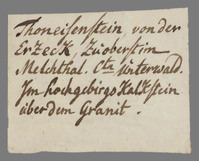 Thoneisenstein von der
Erzeck, Zuoberst im
Melchthal. Ctn Unterwald.
Im hochgebirgs Kalkstein
über dem Granit.